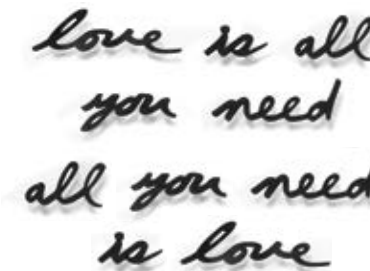 love is all
you need
all you need
is love